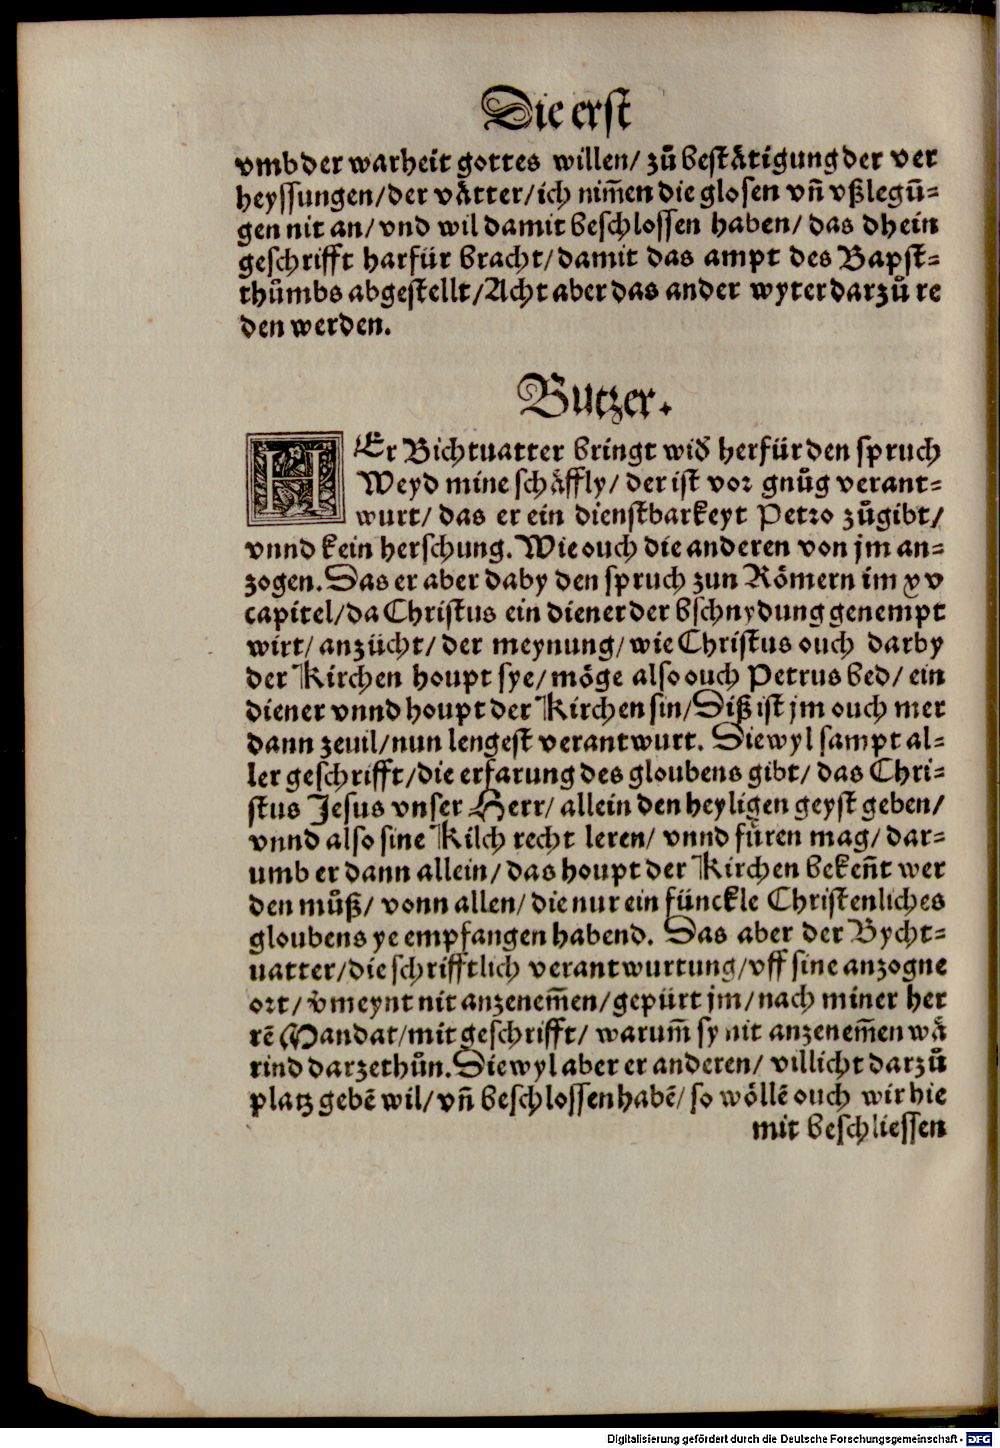 Die erst
vmb der warheit gottes willen/ zů bestätigung der ver
heyssungen/der vätter/ich nim̃en die glosen vñ vßlegū-
gen nit an/ vnd wil damit beschlossen haben/ das dhein
geschrifft harfür bracht/damit das ampt des Bapst-
thůmbs abgestellt/Acht aber das ander wyter darzů re
den werden.
Butzer.
HEr Bichtuatter bringt wid̕ herfür den spruch
Weyd mine schäffly/ der ist vor gnůg verant-
wurt/ das er ein dienstbarkeyt Petro zůgibt/
vnnd kein herschung. Wie ouch die anderen von jm an-
zogen. Das er aber daby den spruch zun Römern im xv
capitel/da Christus ein diener der bschnydung genempt
wirt/ anzücht/ der meynung/ wie Christus ouch darby
der Kirchen houpt sye/ möge also ouch Petrus bed/ ein
diener vnnd houpt der Kirchen sin/ Diß ist jm ouch mer
dann zeuil/nun lengest verantwurt. Diewyl sampt al-
ler geschrifft/die erfarung des gloubens gibt/ das Chri-
stus Jesus vnser Herr/ allein den heyligen geyst geben/
vnnd also sine Kilch recht leren/ vnnd fůren mag/ dar-
umb er dann allein/ das houpt der Kirchen bekeñt wer
den můß/ vonn allen/ die nur ein fünckle Christenliches
gloubens ye empfangen habend. Das aber der Bycht-
uatter/die schrifftlich verantwurtung/vff sine anzogne
ort/ v̄meynt nit anzenem̃en/gepürt jm/nach miner her
rē Mandat/mit geschrifft/ warum̃ sy nit anzenem̃en wä
rind darzethůn. Diewyl aber er anderen/ villicht darzů
platz gebē wil/ vñ beschlossen habē/ so wöllē ouch wir hie
mit beschliessen
Digitalisierung gefördert durch die Deutsche Forschungsgemeinschaft - DFG